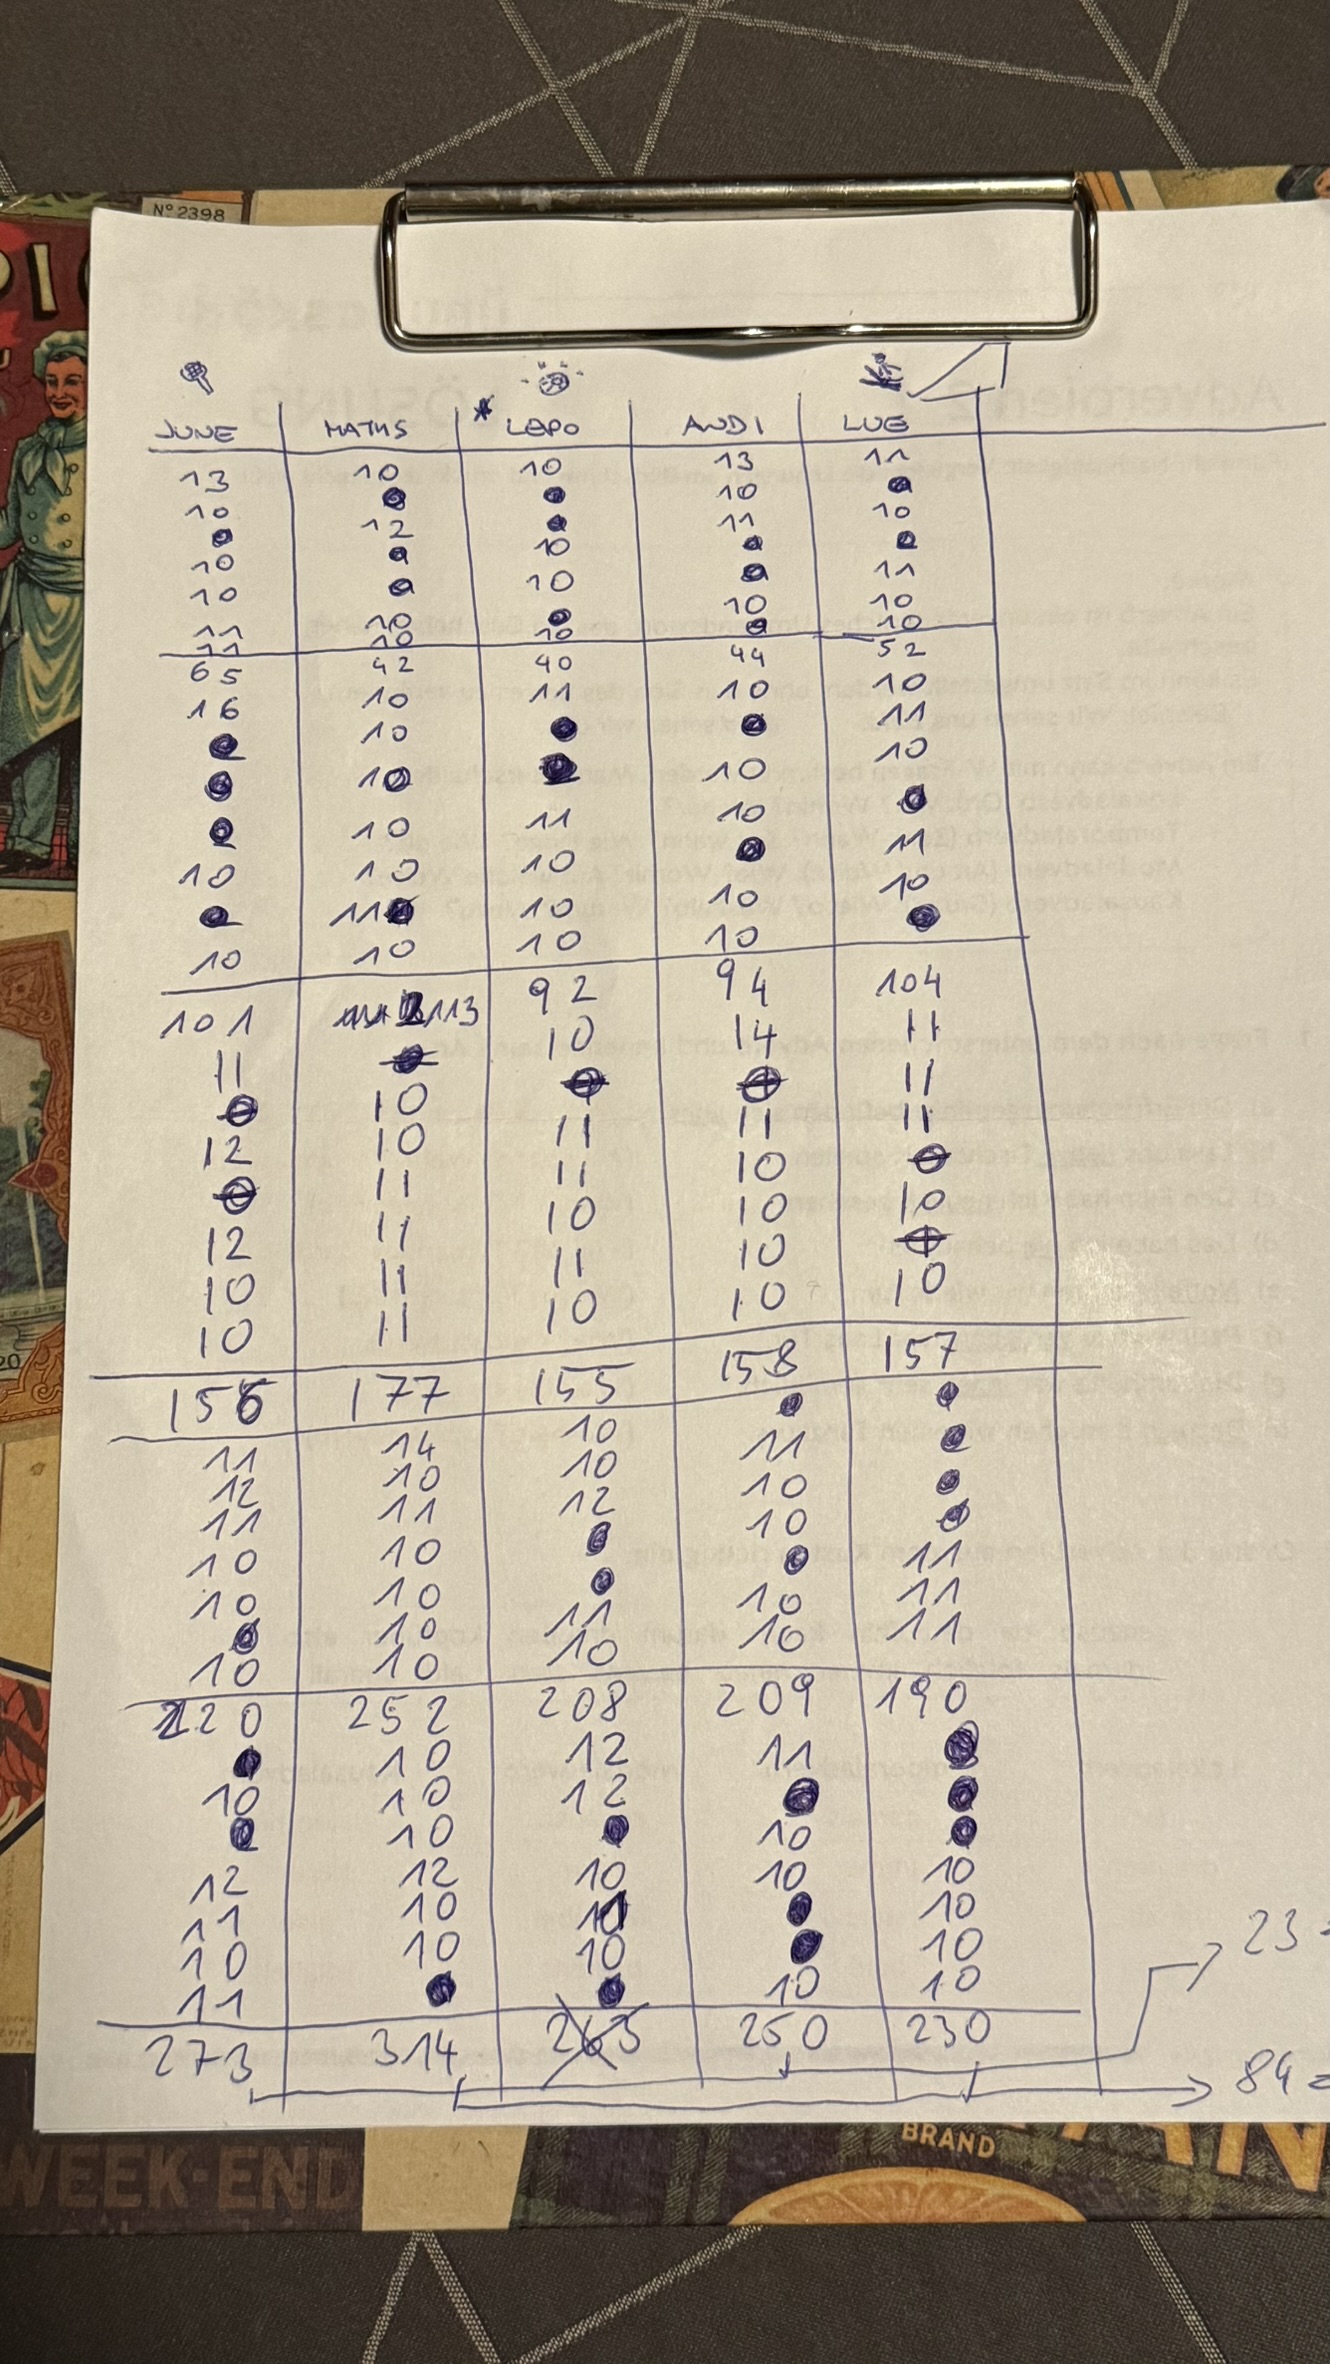 Nº 2398
JUNE MATHS * LEPO ANDI LUE
13 10 10 13 11
10 ● ● 10 ●
● 12 ● 11 10
10 ● 10 ● ●
10 ● 10 ● 11
11 10 ● 10 10
11 10 10 ● 10
65 42 40 44 52
16 10 11 10 10
● 10 ● ● 11
● 10 ● 10 10
● 10 11 10 ●
10 10 10 ● 11
● 11 10 10 10
10 10 10 10 ●
101 113 92 94 104
11 ● 10 14 11
● 10 ● ● 11
12 10 11 11 11
● 11 11 10 ●
12 11 10 10 10
10 11 11 10 ●
10 11 10 10 10
156 177 155 158 157
11 14 10 ● ●
12 10 10 11 ●
11 11 12 10 ●
10 10 ● 10 ●
10 10 ● ● 11
● 10 11 10 11
10 10 10 10 11
220 252 208 209 190
● 10 12 11 ●
10 10 12 ● ●
● 10 ● 10 ●
12 12 10 10 10
11 10 11 ● 10
10 10 10 ● 10
11 ● ● 10 10
23
273 314 263 250 230
84 =
WEEK-END
BRAND